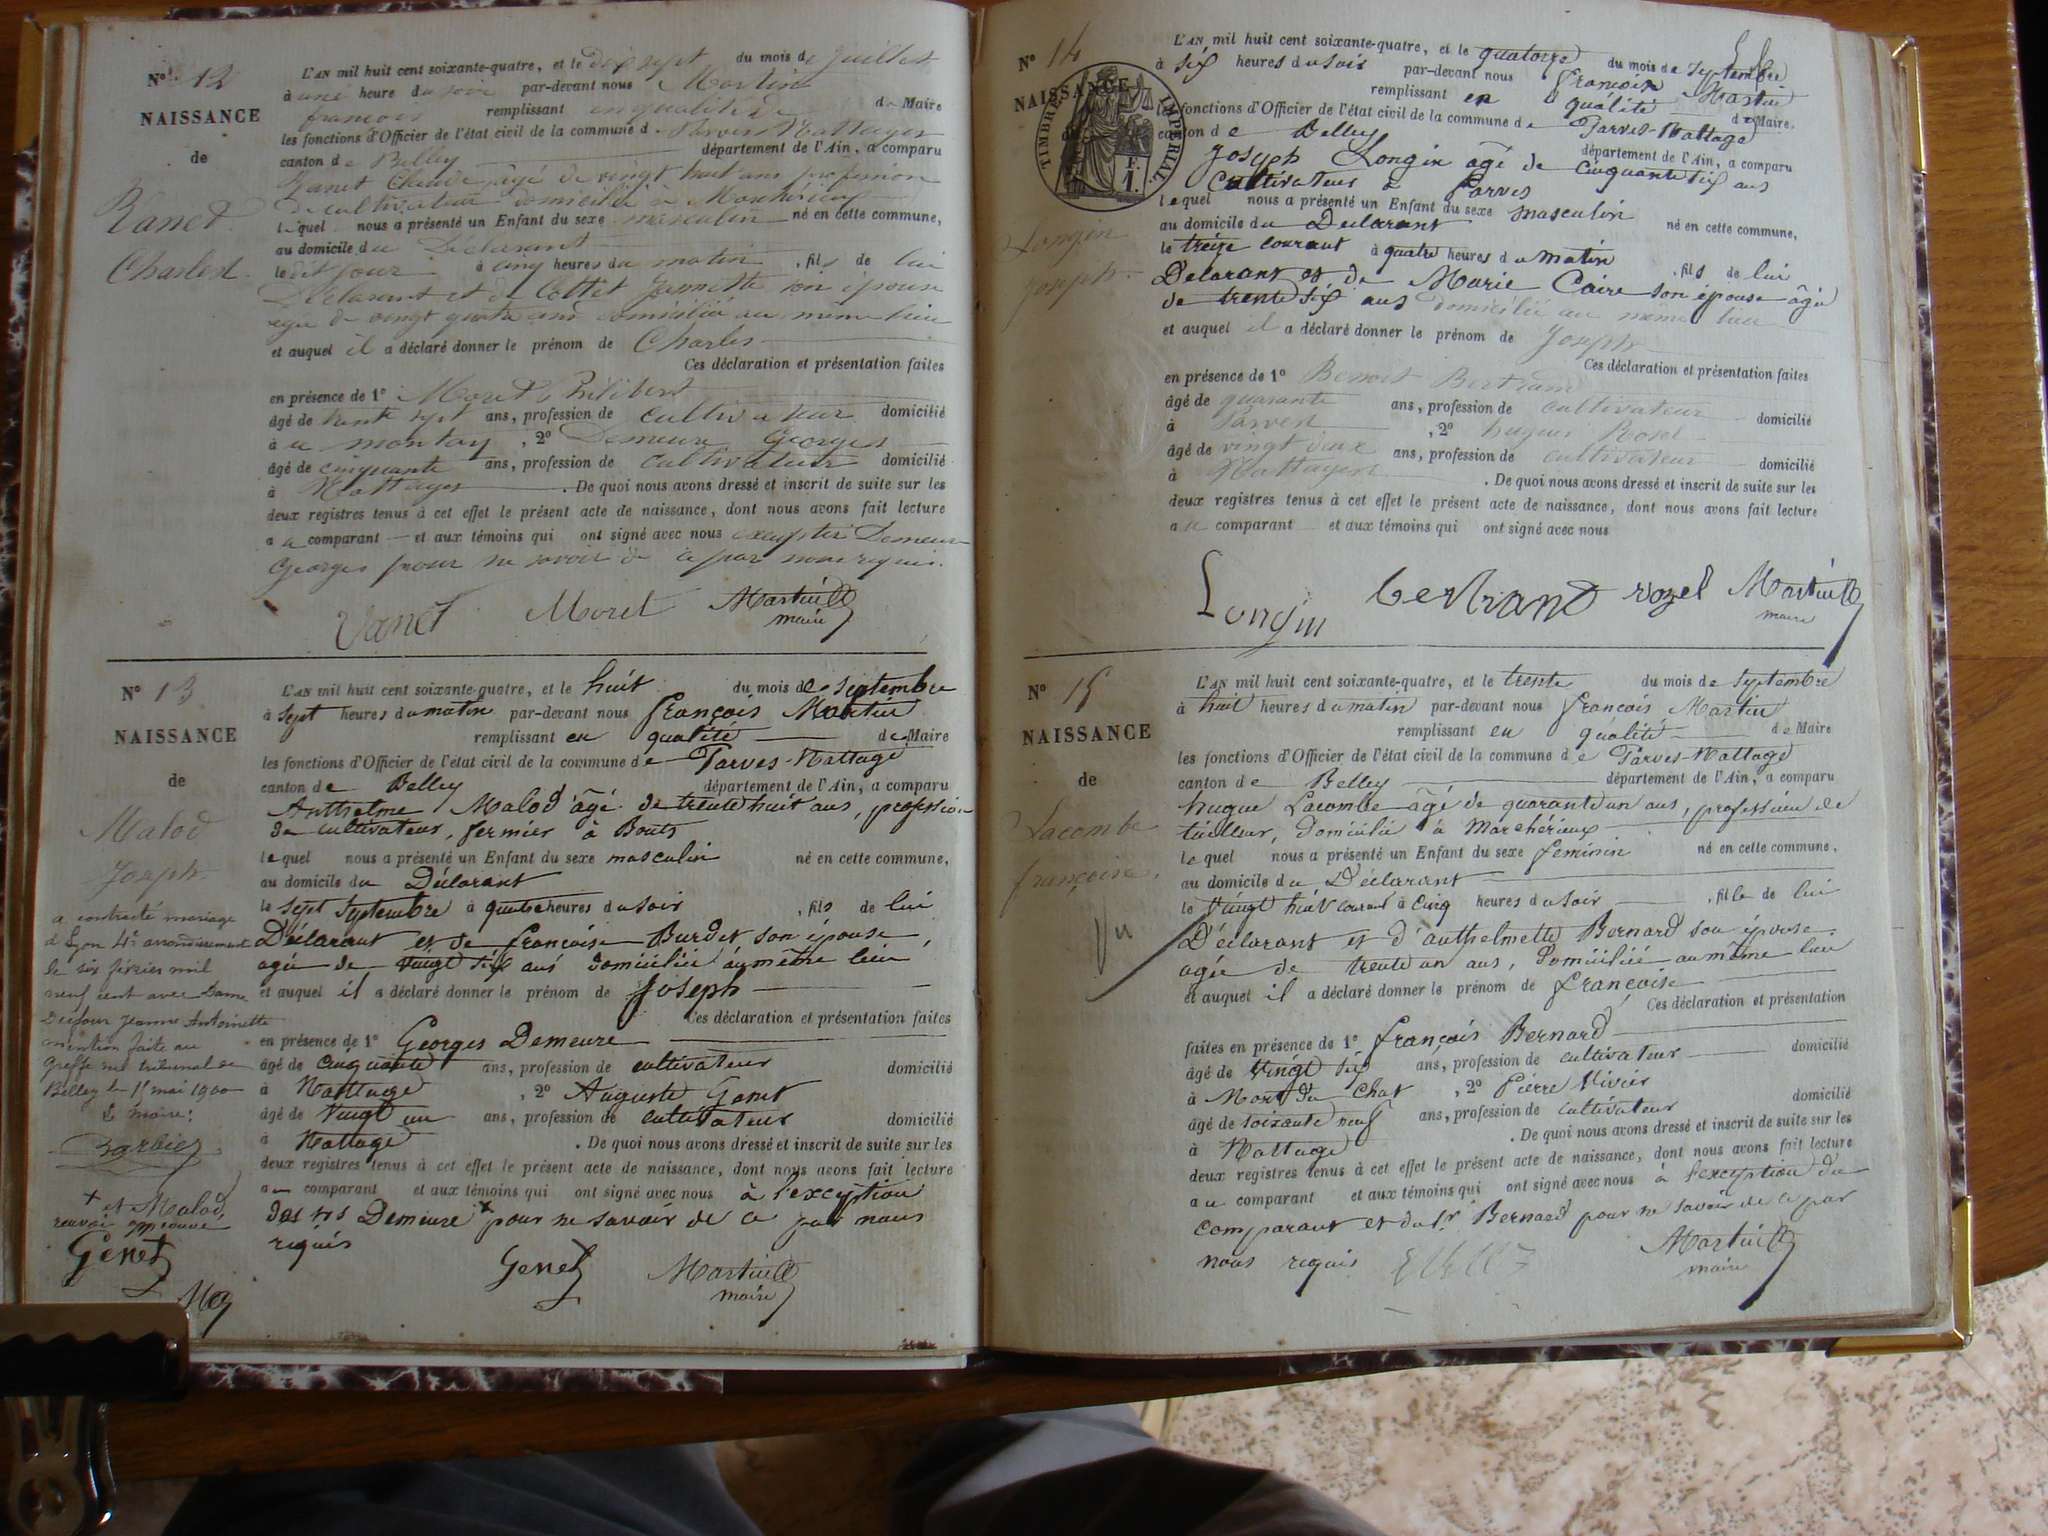 N° 12
NAISSANCE
de
Vanet
Charles
L'AN mil huit cent soixante-quatre, et le dix sept du mois de Juillet
à une heure du soir par-devant nous Martin
françois remplissant en qualité de de Maire
les fonctions d'Officier de l'état civil de la commune de Parves Nattages
canton de Belley département de l'Ain, a comparu
Vanet Claude, âgé de vingt huit ans profession
de cultivateur domicilié à
lequel nous a présenté un Enfant du sexe masculin né en cette commune,
au domicile du Déclarant
le dit jour à cinq heures du matin , fils de lui
Déclarant et de Cottet son épouse
agée de vingt quatre ans domiciliée au même lieu
et auquel il a déclaré donner le prénom de Charles
Ces déclaration et présentation faites
en présence de 1° Moret Philibert
âgé de trente sept ans, profession de cultivateur domicilié
à montay , 2° Demeure Georges
âgé de cinquante ans, profession de cultivateur domicilié
à Nattages . De quoi nous avons dressé et inscrit de suite sur les
deux registres tenus à cet effet le présent acte de naissance, dont nous avons fait lecture
au comparant et aux témoins qui ont signé avec nous excepter Demeure
Georges pour ne savoir de ce par nous requis.
Vanet Moret Martin
maire
N° 13
NAISSANCE
de
Malod
Joseph
L'AN mil huit cent soixante-quatre, et le huit du mois de septembre
à sept heures du matin par-devant nous françois Martin
remplissant en qualité de Maire
les fonctions d'Officier de l'état civil de la commune de Parves-Nattage
canton de Belley département de l'Ain, a comparu
Anthelme Malod âgé de trente huit ans, profession
de cultivateur, fermier à
lequel nous a présenté un Enfant du sexe masculin né en cette commune,
au domicile du Déclarant
le sept septembre à quatre heures du soir , fils de lui
Déclarant et de françoise Burdet son épouse
agée de vingt six ans domiciliée au même lieu
et auquel il a déclaré donner le prénom de Joseph
Ces déclaration et présentation faites
en présence de 1° Georges Demeure
âgé de cinquante ans, profession de cultivateur domicilié
à Nattage , 2° Auguste Genet
âgé de vingt un ans, profession de cultivateur domicilié
à Nattage . De quoi nous avons dressé et inscrit de suite sur les
deux registres tenus à cet effet le présent acte de naissance, dont nous avons fait lecture
au comparant et aux témoins qui ont signé avec nous à l'exception
des srs Demeure x pour ne savoir de ce par nous
requis
Genet Martin
maire
a contracté mariage
à Lyon 4e arrondissement
le six février mil
neuf cent avec Dame
Dufour Jeanne Antoinette
mention faite au
Greffe du tribunal de
Belley le 15 mai 1900
Le maire:
Barbier
x et Malod
renvoi approuvé
Genet
N° 14
NAISSANCE
TIMBRE IMPÉRIAL
1 F.
Longin
Joseph
L'AN mil huit cent soixante-quatre, et le quatorze du mois de septembre
à six heures du soir par-devant nous françois Martin
remplissant en qualité de Maire.
les fonctions d'Officier de l'état civil de la commune de Parves-Nattage
canton de Belley département de l'Ain, a comparu
Joseph Longin âgé de cinquante six ans
cultivateur à Parves
lequel nous a présenté un Enfant du sexe masculin né en cette commune,
au domicile du Déclarant
le treize courant à quatre heures du matin , fils de lui
Déclarant et de Marie Caire son épouse âgée
de trente six ans domicilié au même lieu
et auquel il a déclaré donner le prénom de Joseph
Ces déclaration et présentation faites
en présence de 1° Benoit Bertrand
âgé de quarante ans, profession de cultivateur domicilié
à Parves , 2° hugues Rosel
âgé de vingt deux ans, profession de cultivateur domicilié
à Nattages . De quoi nous avons dressé et inscrit de suite sur les
deux registres tenus à cet effet le présent acte de naissance, dont nous avons fait lecture
au comparant et aux témoins qui ont signé avec nous
Longin bertrand rozel Martin
maire
N° 15
NAISSANCE
de
Lacombe
françoise.
Vu
L'AN mil huit cent soixante-quatre, et le trente du mois de septembre
à huit heures du matin par-devant nous françois Martin
remplissant en qualité de Maire
les fonctions d'Officier de l'état civil de la commune de Parves-Nattage
canton de Belley département de l'Ain, a comparu
hugue Lacombe âgé de quarante un ans, profession de
tailleur, domicilié à
lequel nous a présenté un Enfant du sexe feminin né en cette commune,
au domicile du Déclarant
le vingt huit courant à cinq heures du soir , fille de lui
Déclarant et d'anthelmette Bernard son épouse
agée de trente un ans, domiciliée au même lieu
et auquel il a déclaré donner le prénom de françoise
Ces déclaration et présentation
faites en présence de 1° françois Bernard
âgé de vingt six ans, profession de cultivateur domicilié
à Mort du Chat , 2° Pierre Vivier
âgé de soixante neuf ans, profession de cultivateur domicilié
à Nattage . De quoi nous avons dressé et inscrit de suite sur les
deux registres tenus à cet effet le présent acte de naissance, dont nous avons fait lecture
au comparant et aux témoins qui ont signé avec nous à l'exception du
comparant et du Sr Bernard pour ne savoir de ce par
nous requis
Martin
maire